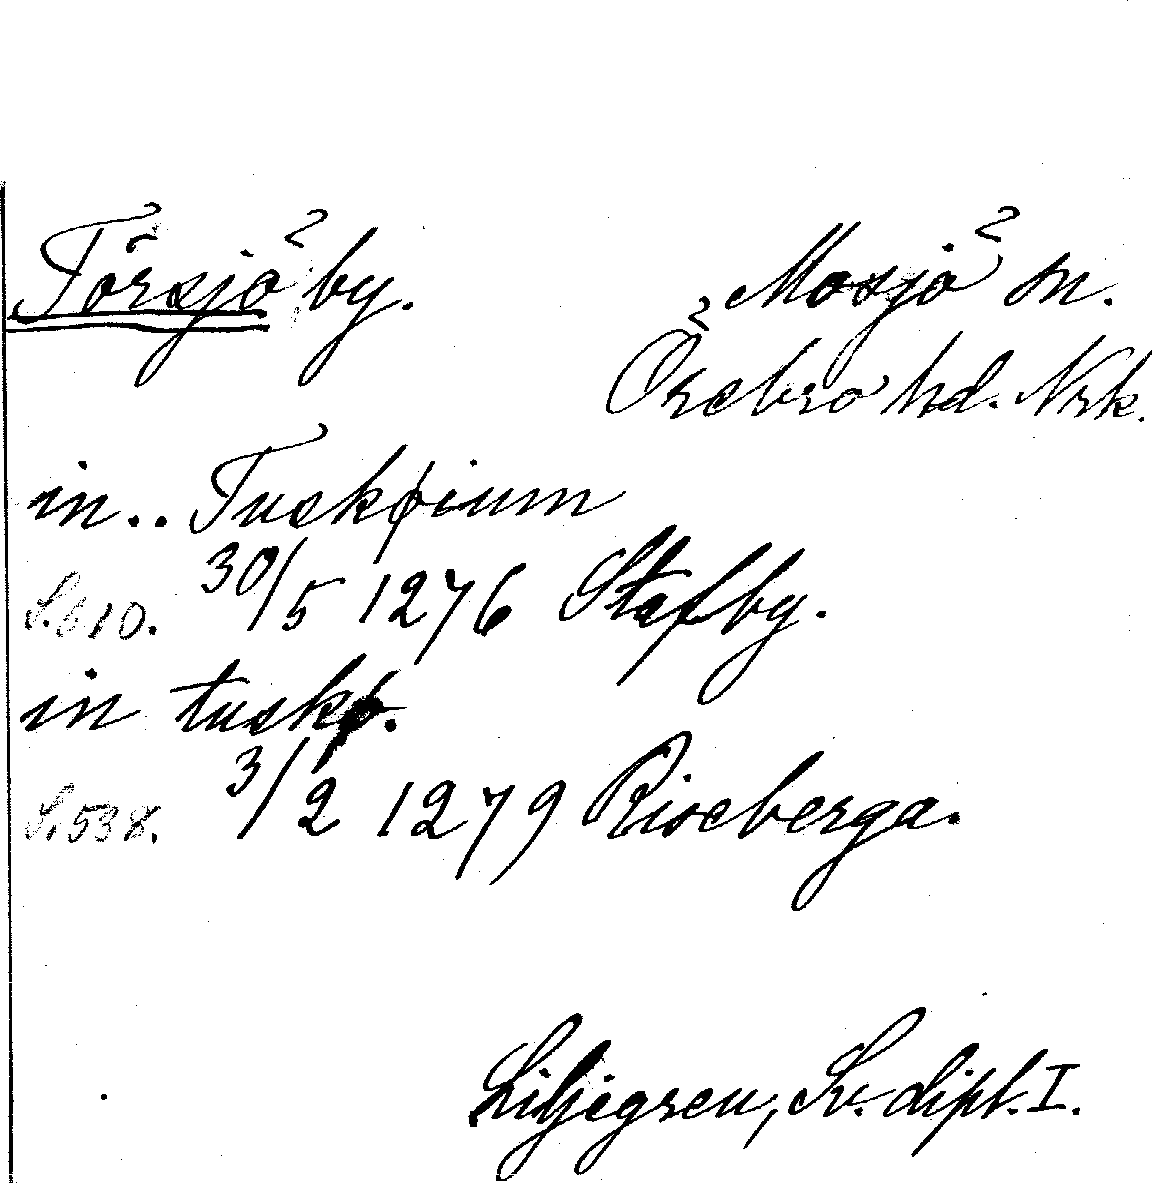 Törsjö by. Mosjö sn.
Örebro hd. Nrk.
in.. Tuskøium
S. 610. 30/5 1276 Stafby.
in tuskø.
S. 538. 3/2 1279 Riseberga.
Liljegren, Sv. dipl. I.